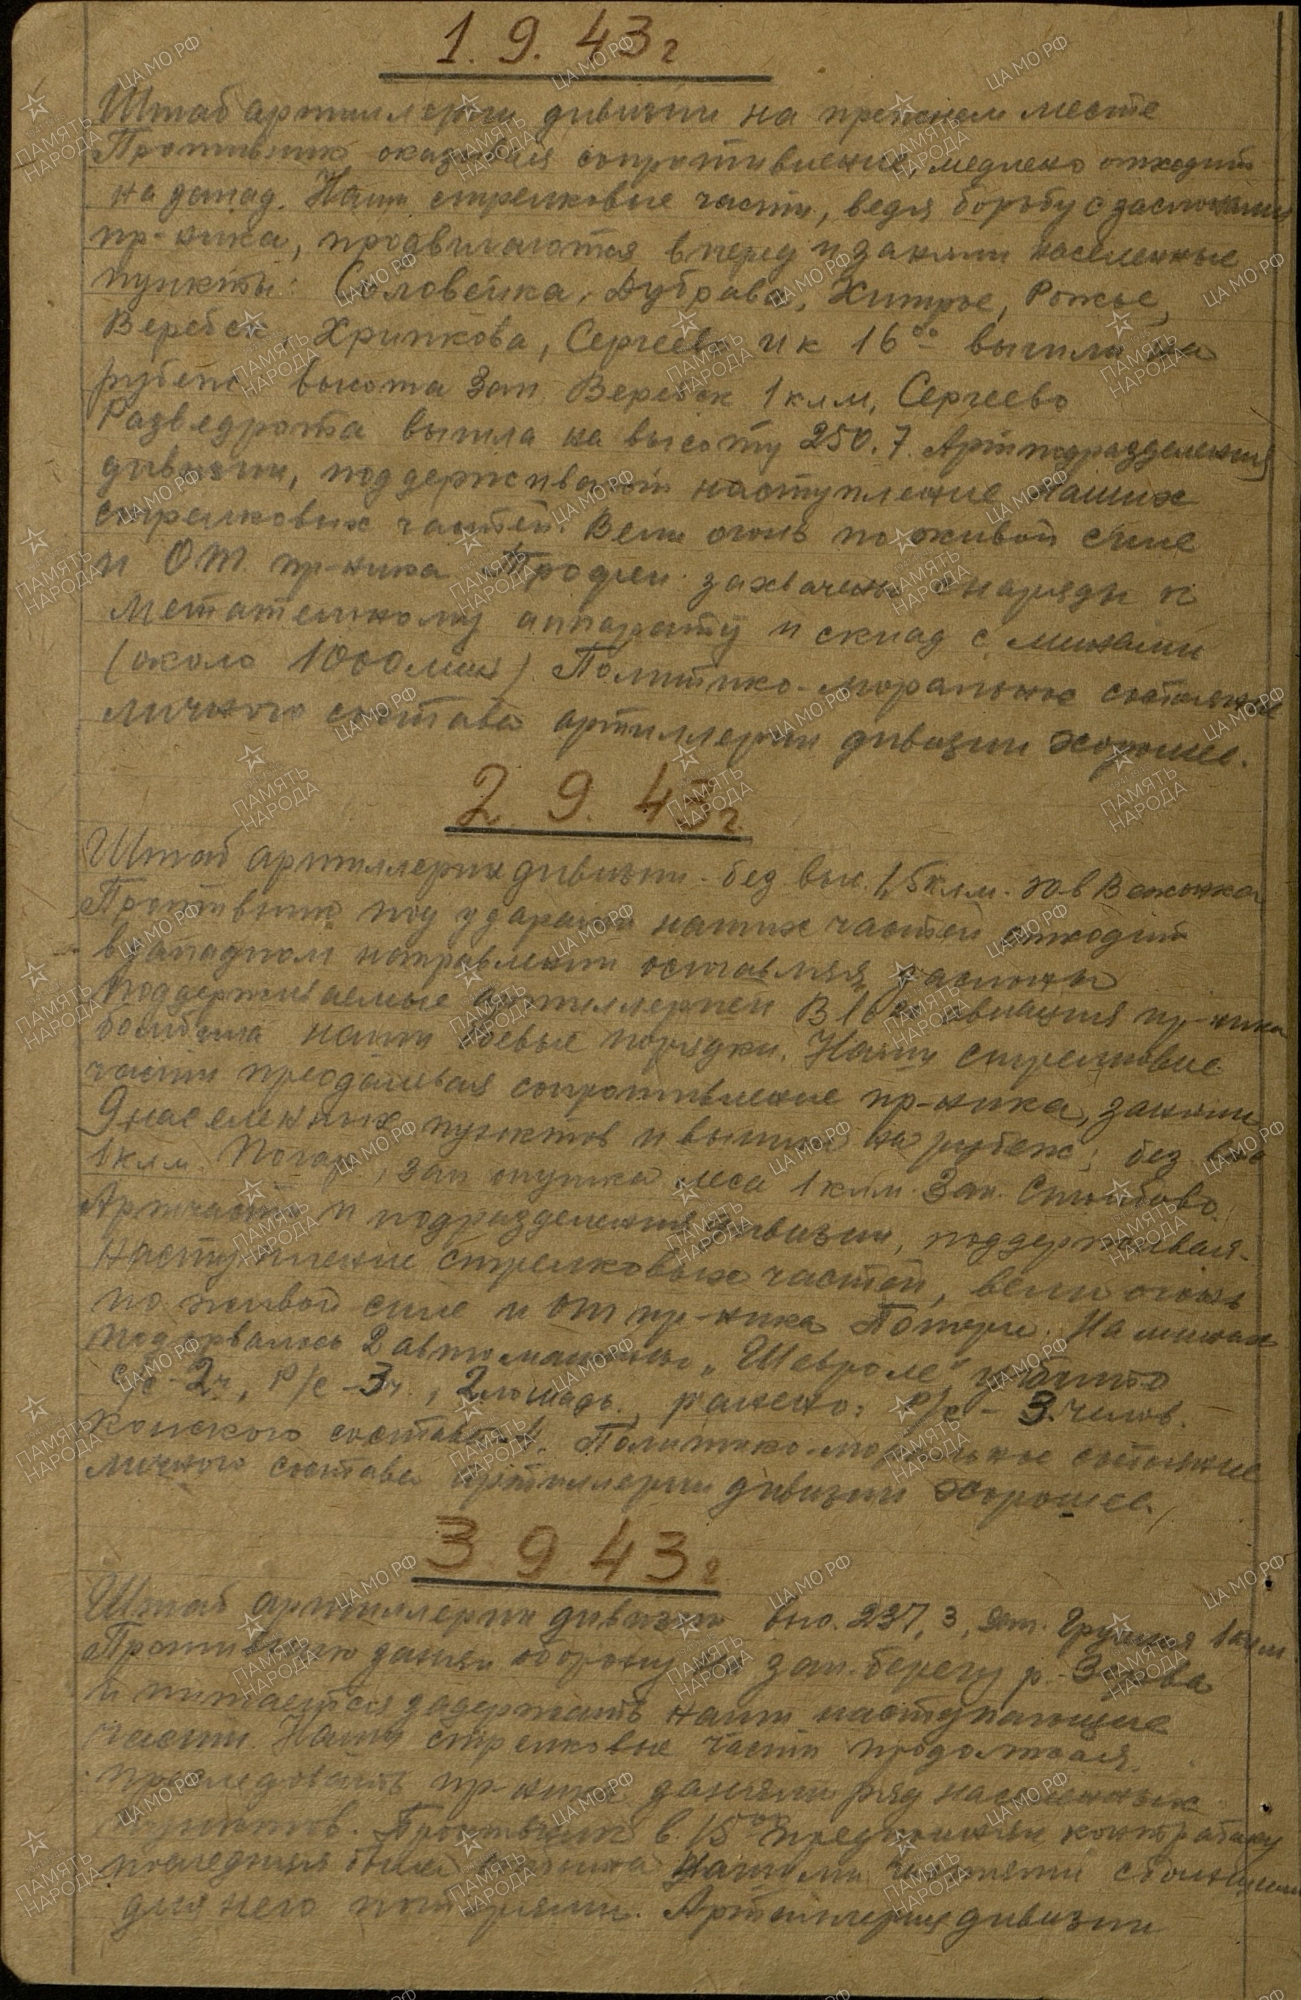 1. 9. 43 г
Штаб артиллерии дивизии на прежнем месте
Противник, оказывая сопротивление, медлено отходит
на запад. Наши стрелковые части, ведя борьбу с заслонами
пр-ника, продвигаются вперед и заняли населенные
пункты: Соловейка, Дубрава, Хитрое, Рожье,
Веребск, Хрипкова, Сергеево и к 16⁰⁰ вышли на
рубеж: высота зап. Веребск 1 клм, Сергеево
Разведрота вышла на высоту 250.7. Артподразделения
дивизии, поддерживают наступление наших
стрелковых частей. Вели огонь по живой силе
и ОТ пр-ника. Трофеи: захвачены снаряды к
метательному аппарату и склад с минами
(около 1000 мин). Политико-моральное состояние
личного состава артиллерии дивизии хорошее.
2. 9. 43 г.
Штаб артиллерии дивизии - без. выс. 1,5 клм. ю-в
Противник под ударами наших частей отходит
в западном направлении оставляя заслоны
поддерживаемые артиллерией. В 16⁰⁰ авиация пр-ника
бомбила наши боевые порядки. Наши стрелковые
части преодолевая сопротивление пр-ника, заняли
9 населенных пунктов и вышли на рубеж: без. выс
1 клм. Погар, зап опушка леса 1 клм. Зап. Столбово.
Артчасти и подразделения дивизии, поддерживая
наступление стрелковых частей, вели огонь
по живой силе и ОТ пр-ника. Потери: На минах
подорвалось 2 автомашины „Шевроле“, убито
с/с - 2 ч, р/с - 3 ч., 2 лошадь, ранено: р/с - 3 челов.
конского состава Политико-моральное состояние
личного состава артиллерии дивизии хорошее.
3 9 43 г
Штаб артиллерии дивизии выс. 237,3, зап. 1 клм
Противник занял оборону на зап. берегу р.
и пытается задержать наши наступающие
части. Наши стрелковые части продолжая
преследовать пр-ника заняли ряд населенных
пунктов. Противник в 15⁰⁰ предпринял контратаку
последняя была нашими частями с большими
для него потерями. Артиллерия дивизии
ПАМЯТЬ НАРОДА
ЦА МО РФ